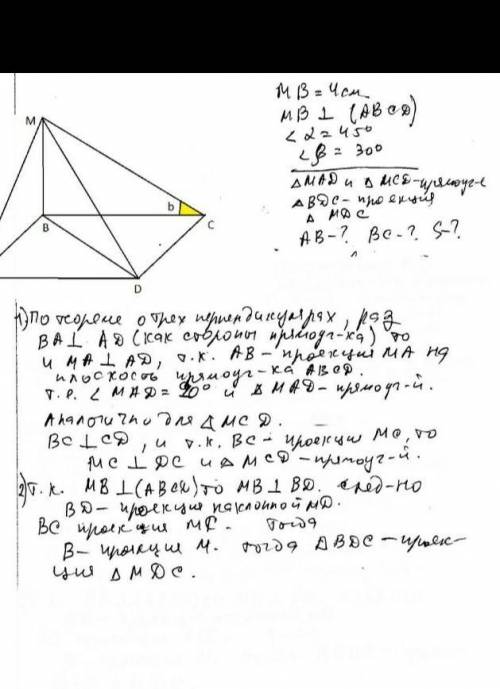 M
b
B
C
D
MB = 4 см
MB ⊥ (ABCD)
∠α = 45°
∠β = 30°
△MAD и △MCD - прямоуг-е
△BDC - проекция
△ MDC
AB - ? BC - ? S - ?
1) По теореме о трех перпендикулярах, раз
BA ⊥ AD (как стороны прямоуг-ка) то
и MA ⊥ AD, т.к. AB - проекция MA на
плоскость прямоуг-ка ABCD.
т.е. ∠ MAD = 90° и △ MAD - прямоуг-й.
Аналогично для △ MCD.
BC ⊥ CD, и т.к. BC - проекция MC, то
MC ⊥ DC и △ MCD - прямоуг-й.
2) т.к. MB ⊥ (ABCD) то MB ⊥ BD. След-но
BD - проекция наклонной MD.
BC проекция MC. Тогда
B - проекция M. тогда △BDC - проек-
ция △ MDC.